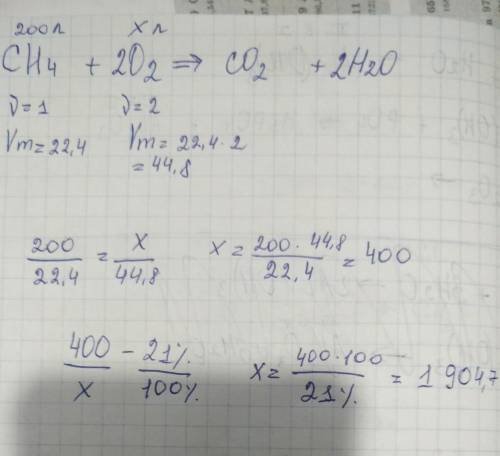 200л x л
CH4 + 2O2 => CO2 + 2H2O
ν=1 ν=2
Vm=22,4 Vm=22,4·2
=44,8
200/22,4 = x/44,8 x=200·44,8/22,4=400
400/x - 21%/100% x=400·100/21%=1 904,7